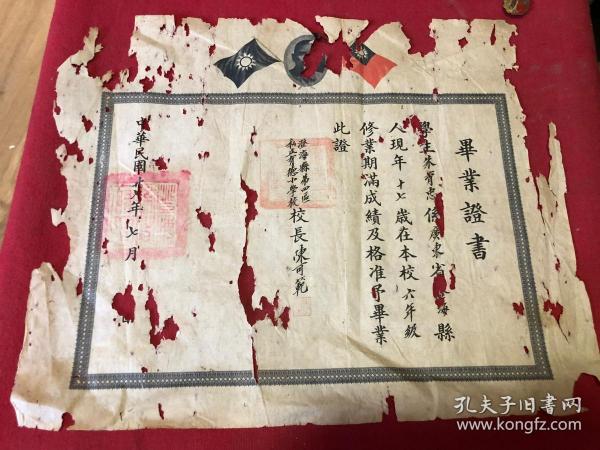 畢業證書
學生朱育忠係廣東省海縣
人現年十七歲在本校六年級
修業期滿成績及格准予畢業
此證
澄海縣第四區
私立育德小學校
校長陳可範
中華民國年七月
孔夫子旧书网
www.kongfz.com